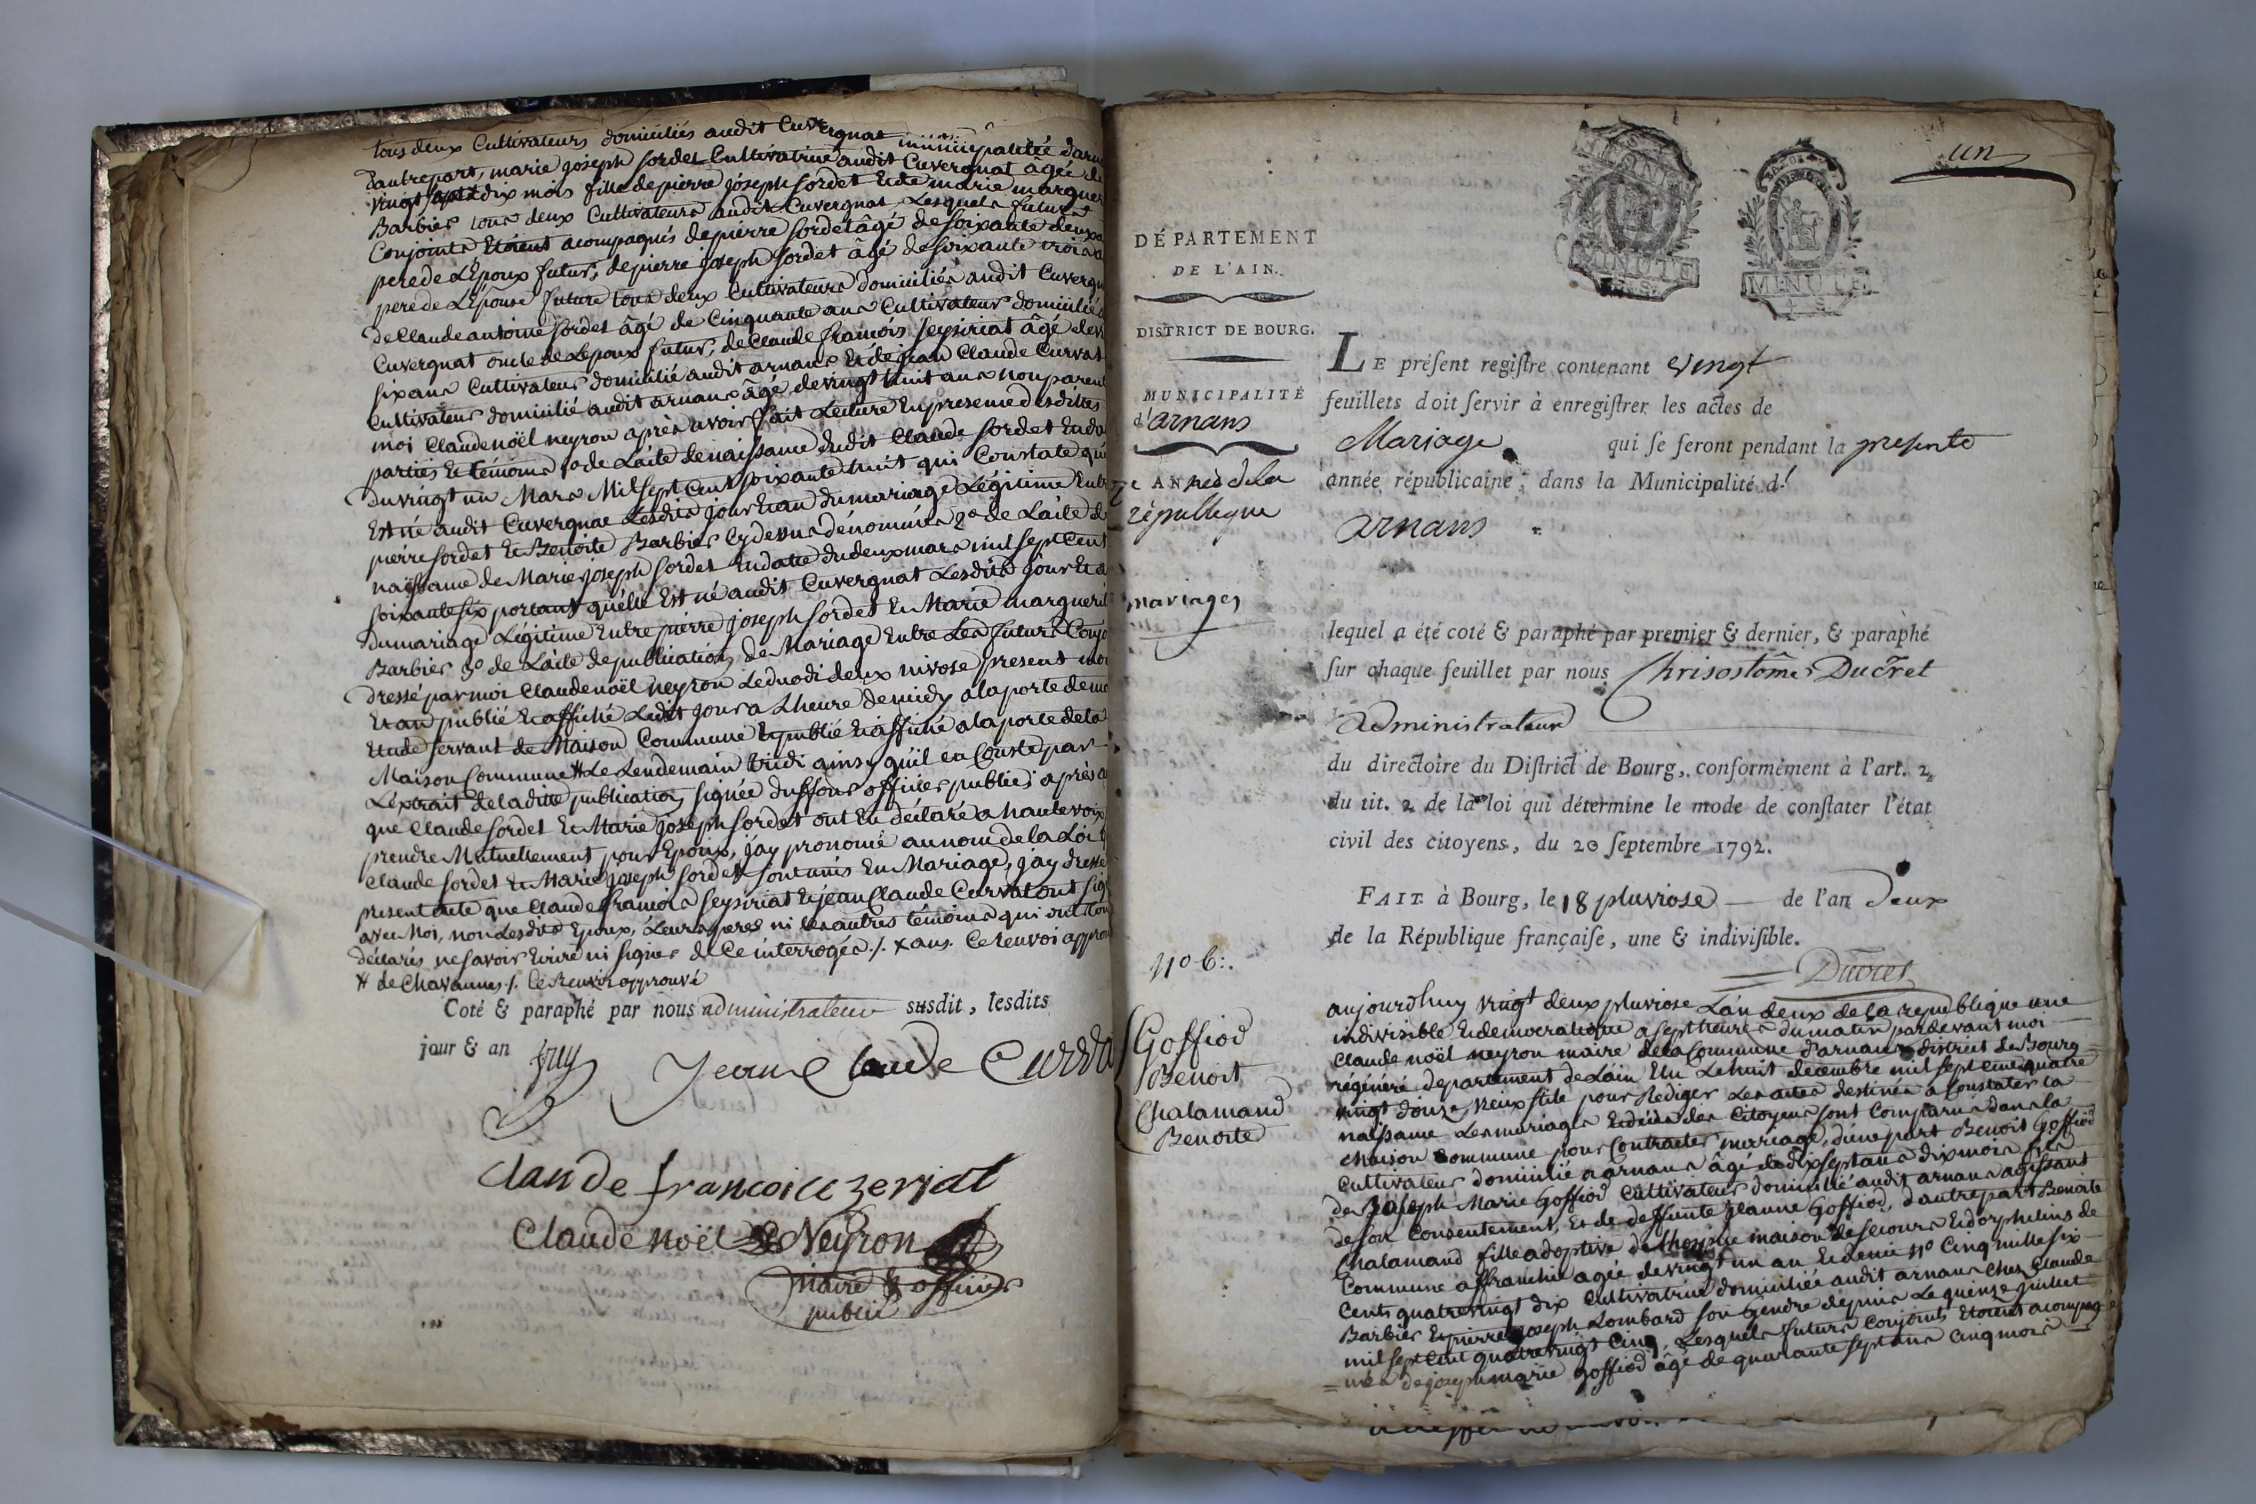 tous deux Cultivateurs domiciliés audit Cuvergnat municipalitée d'arn
d'autre part, marie joseph sordet Cultivatrice audit Cuvergnat âgée de
vingt sept dix mois fille de pierre joseph sordet Et de marie marguer
Barbier tous deux Cultivateurs audit Cuvergnat Lesquels futurs
Conjoints Etoient acompagnés de pierre sordet âgé de soixante deux a
pere de L'Epoux futur, de pierre joseph sordet âgé de soixante trois a
pere de L'Epouse future tous deux Cultivateurs domiciliés audit Cuvergn
de Claude antoine sordet âgé de Cinquante ans Cultivateur domicilié
Cuvergnat oncle de Lepoux futur, de Claude francois seysiriat âgé de
six ans Cultivateur domicilié audit arnans Et de jean Claude Curvat
Cultivateur domicilié audit arnans âgé de vingt huit ans non parent
moi Claude noël neyron après avoir fait Lecture En presence desdittes
parties Et témoins 1o de L'acte de naissance dudit Claude sordet En da
du vingt un Mars Mil sept Cent soixante huit qui Constate qu
Est né audit Cuvergnat Lesdits jour Et an du mariage Légitime Entre
pierre sordet Et Benoite Barbier Cy devant dénommés 2o de L'acte de
naissance de Marie joseph sordet En datte du deux mars mil sept Cent
soixante six portant qu'elle Est né audit Cuvergnat Lesdits jour Et a
du mariage Légitime Entre pierre joseph sordet Et Marie marguerit
Barbier 3o de L'acte de publication de Mariage Entre Les futurs Conjo
dressé par moi Claude noël neyron Le duodi deux nivose present moi
Et an publié Et affiché Ledit jour a L'heure de midy a la porte de ma
Etude servant de Maison Commune Et publié Et affiché a la porte de la
Maison Commune # Le Lendemain tridi ainsy qu'il en Conste par
L'extrait de la ditte publication signée duffour officier public; après a
que Claude sordet Et Marie joseph sordet ont Eu déclaré a haute voix
prendre Mutuellement pour Epoux, j'ay prononcé au nom de la Loi q
Claude sordet Et Marie joseph sordet sont unis En Mariage, j'ay dressé
present acte que Claude francois seysiriat Et jean Claude Curvat ont sig
avec Moi, non Lesdits Epoux, Leurs peres ni les autres témoins qui ont tou
déclarés ne savoir Ecrire ni signer de Ce interrogés ./. x ans. Ce renvoi approu
# de Chavannes ./. le Renvoi approuvé
Coté & paraphé par nous administrateur susdit, lesdits
jour & an
Jean Claude Curva
Claude francoice zeriat
Claude noël Neyron
maire & officier
public
un
MINUTE
MINUTE
4. S.
DÉPARTEMENT
DE L'AIN.
DISTRICT DE BOURG.
MUNICIPALITÉ
d'arnans
2e ANnée de la
république
mariages
LE préſent regiſtre contenant vingt
feuillets doit ſervir à enregiſtrer les actes de
Mariage qui ſe feront pendant la presente
année républicaine, dans la Municipalité d'
arnans
lequel a été coté & paraphé par premier & dernier, & paraphé
ſur chaque feuillet par nous Chrisostôme Ducret
administrateur
du directoire du Diſtrict de Bourg, conformément à l'art. 2
du tit. 2 de la loi qui détermine le mode de conſtater l'état
civil des citoyens, du 20 ſeptembre 1792.
FAIT à Bourg, le 18 pluviose de l'an deux
de la République françaiſe, une & indiviſible.
Ducret
No 6.
Goffiod
Benoit
Chalamand
Benoite
aujourdhuy vingt deux pluviose L'an deux de la republique une
indivisible Et democratique a sept heures du matin pardevant moi
Claude noël neyron maire de la Commune d'arnans district de Bourg
régénéré departement de Lain Elu Le huit decembre mil sept cent quatre
vingt douze vieux stile pour Rediger Les actes destinés a Constater La
naissance Les mariages Et décès des Citoyens sont Comparus dans la
Maison Commune pour Contracter mariage, d'une part Benoit Goffiod
Cultivateur domicilié a arnans âgé de dix sept ans dix mois fils
de Joseph Marie Goffiod Cultivateur domicilié audit arnans agissant
de son Consentement, Et de deffunte jeanne Goffiod, d'autre part Benoite
Chalamand fille adoptive de l'hospice maison de secours Et d'orphelins de
Commune affranchie agée de vingt un an Et demi No Cinq mille six
Cents quatrevingt dix Cultivatrice domiciliée audit arnans chez Claude
Barbier Et pierre joseph Lombard son Gendre depuis Le quinze juillet
mil sept Cent quatrevingt Cinq, Lesquels futurs Conjoints Etoient acompag
nés de joseph marie Goffiod âgé de quarante sept ans Cinq mois